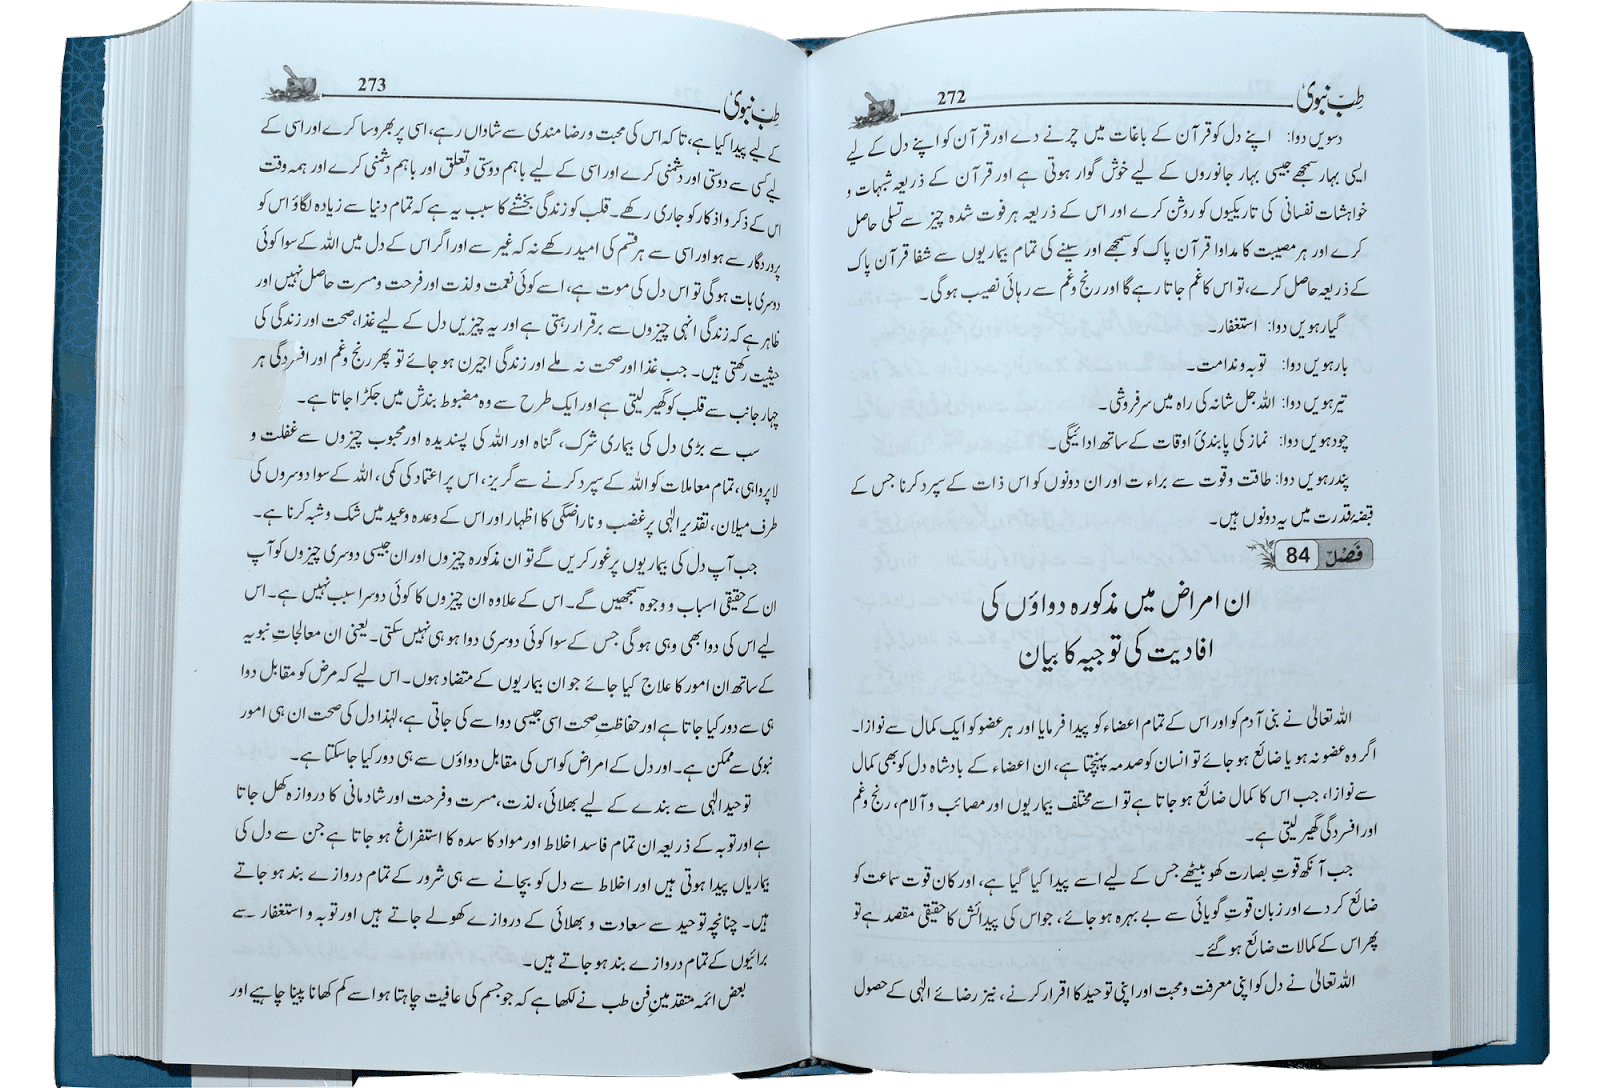 طِبِّ نبویؐ
272
دسویں دوا: اپنے دل کو قرآن کے باغات میں چرنے دے اور قرآن کو اپنے دل کے لیے
ایسی بہار سمجھے جیسی بہار جانوروں کے لیے خوش گوار ہوتی ہے اور قرآن کے ذریعہ شبہات و
خواہشات نفسانی کی تاریکیوں کو روشن کرے اور اس کے ذریعہ ہر فوت شدہ چیز سے تسلی حاصل
کرے اور ہر مصیبت کا مداوا قرآن پاک کو سمجھے اور سینے کی تمام بیماریوں سے شفا قرآن پاک
کے ذریعہ حاصل کرے، تو اس کا غم جاتا رہے گا اور رنج وغم سے رہائی نصیب ہوگی۔
گیارہویں دوا: استغفار۔
بارہویں دوا: توبہ وندامت۔
تیرہویں دوا: اللہ جل شانہ کی راہ میں سرفروشی۔
چودہویں دوا: نماز کی پابندیٔ اوقات کے ساتھ ادائیگی۔
پندرہویں دوا: طاقت وقوت سے براءت اور ان دونوں کو اس ذات کے سپرد کرنا جس کے
قبضۂ قدرت میں یہ دونوں ہیں۔
فَصْل 84
ان امراض میں مذکورہ دواؤں کی
افادیت کی توجیہ کا بیان
اللہ تعالیٰ نے بنی آدم کو اور اس کے تمام اعضاء کو پیدا فرمایا اور ہر عضو کو ایک کمال سے نوازا۔
اگر وہ عضو نہ ہو یا ضائع ہو جائے تو انسان کو صدمہ پہنچتا ہے، ان اعضاء کے بادشاہ دل کو بھی کمال
سے نوازا، جب اس کا کمال ضائع ہو جاتا ہے تو اسے مختلف بیماریوں اور مصائب وآلام، رنج وغم
اور افسردگی گھیر لیتی ہے۔
جب آنکھ قوتِ بصارت کھو بیٹھے جس کے لیے اسے پیدا کیا گیا ہے، اور کان قوت سماعت کو
ضائع کر دے اور زبان قوتِ گویائی سے بے بہرہ ہو جائے، جو اس کی پیدائش کا حقیقی مقصد ہے تو
پھر اس کے کمالات ضائع ہو گئے۔
اللہ تعالیٰ نے دل کو اپنی معرفت ومحبت اور اپنی توحید کا اقرار کرنے، نیز رضائے الٰہی کے حصول
طِبِّ نبویؐ
273
کے لیے پیدا کیا ہے، تاکہ اس کی محبت ورضا مندی سے شاداں رہے، اسی پر بھروسا کرے اور اسی کے
لیے کسی سے دوستی اور دشمنی کرے اور اسی کے لیے باہم دوستی وتعلق اور باہم دشمنی کرے اور ہمہ وقت
اس کے ذکر و اذکار کو جاری رکھے۔ قلب کو زندگی بخشنے کا سبب یہ ہے کہ تمام دنیا سے زیادہ لگاؤ اس کو
پروردگار سے ہو اور اسی سے ہر قسم کی امید رکھے نہ کہ غیر سے اور اگر اس کے دل میں اللہ کے سوا کوئی
دوسری بات ہوگی تو اس دل کی موت ہے، اسے کوئی نعمت ولذت اور فرحت ومسرت حاصل نہیں اور
ظاہر ہے کہ زندگی انہی چیزوں سے برقرار رہتی ہے اور یہ چیزیں دل کے لیے غذا، صحت اور زندگی کی
حیثیت رکھتی ہیں۔ جب غذا اور صحت نہ ملے اور زندگی اجیرن ہو جائے تو پھر رنج وغم اور افسردگی ہر
چہار جانب سے قلب کو گھیر لیتی ہے اور ایک طرح سے وہ مضبوط بندش میں جکڑا جاتا ہے۔
سب سے بڑی دل کی بیماری شرک، گناہ اور اللہ کی پسندیدہ اور محبوب چیزوں سے غفلت و
لاپرواہی، تمام معاملات کو اللہ کے سپرد کرنے سے گریز، اس پر اعتماد کی کمی، اللہ کے سوا دوسروں کی
طرف میلان، تقدیر الٰہی پر غضب و ناراضگی کا اظہار اور اس کے وعدہ وعید میں شک وشبہ کرنا ہے۔
جب آپ دل کی بیماریوں پر غور کریں گے تو ان مذکورہ چیزوں اور ان جیسی دوسری چیزوں کو آپ
ان کے حقیقی اسباب و وجوہ سمجھیں گے۔ اس کے علاوہ ان چیزوں کا کوئی دوسرا سبب نہیں ہے۔ اس
لیے اس کی دوا بھی وہی ہوگی جس کے سوا کوئی دوسری دوا ہو ہی نہیں سکتی۔ یعنی ان معالجاتِ نبویہ
کے ساتھ ان امور کا علاج کیا جائے جو ان بیماریوں کے متضاد ہوں۔ اس لیے کہ مرض کو مقابل دوا
ہی سے دور کیا جاتا ہے اور حفاظتِ صحت اسی جیسی دوا سے کی جاتی ہے، لہٰذا دل کی صحت ان ہی امور
نبوی سے ممکن ہے۔ اور دل کے امراض کو اس کی مقابل دواؤں سے ہی دور کیا جا سکتا ہے۔
توحید الٰہی سے بندے کے لیے بھلائی، لذت، مسرت وفرحت اور شادمانی کا دروازہ کھل جاتا
ہے اور توبہ کے ذریعہ ان تمام فاسد اخلاط اور مواد کا سدہ کا استفراغ ہو جاتا ہے جن سے دل کی
بیماریاں پیدا ہوتی ہیں اور اخلاط سے دل کو بچانے سے ہی شرور کے تمام دروازے بند ہو جاتے
ہیں۔ چنانچہ توحید سے سعادت و بھلائی کے دروازے کھولے جاتے ہیں اور توبہ و استغفار سے
برائیوں کے تمام دروازے بند ہو جاتے ہیں۔
بعض ائمہ متقدمینِ فن طب نے لکھا ہے کہ جو جسم کی عافیت چاہتا ہو اسے کم کھانا پینا چاہیے اور